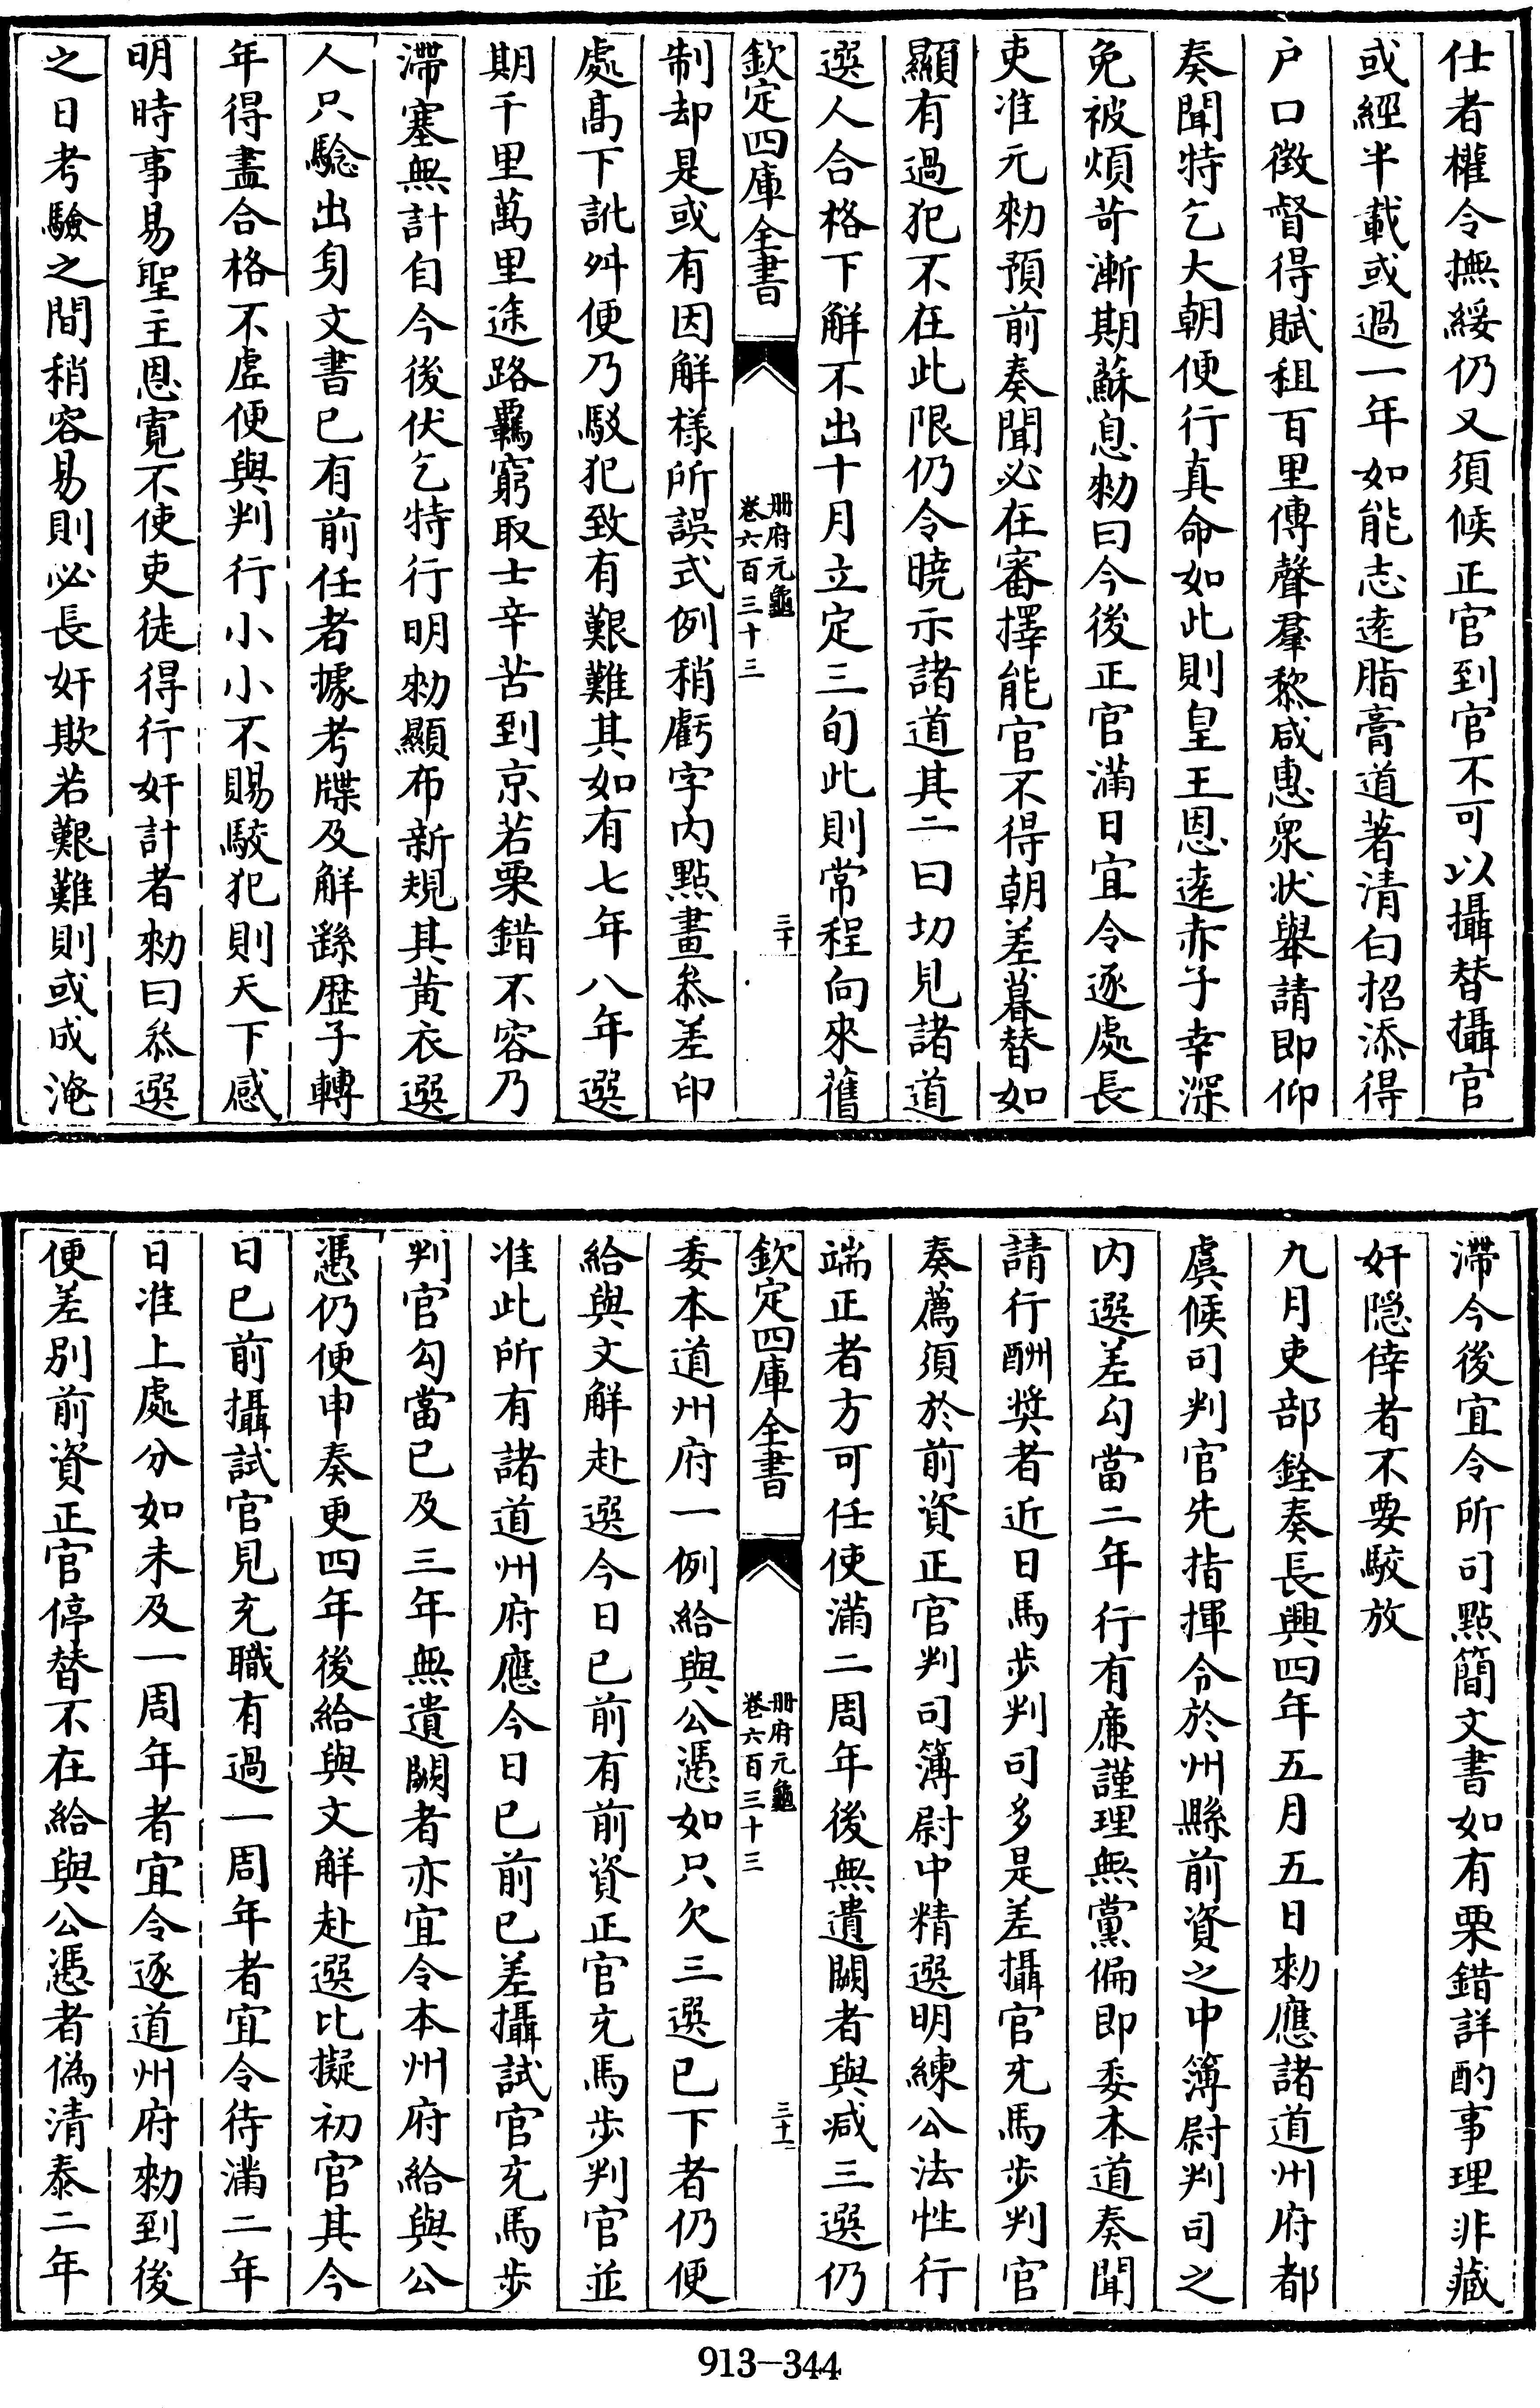 仕者權令撫綏仍又須候正官到官不可以攝替攝官
或經半載或過一年如能志逺脂膏道著清白招添得
户口徴督得賦租百里傳聲羣黎咸惠衆狀舉請即仰
奏聞特乞大朝便行真命如此則皇王恩逺赤子幸深
免被煩苛漸期蘇息勑曰今後正官滿日宜令逐處長
吏准元勑預前奏聞必在審擇能官不得朝差暮替如
顯有過犯不在此限仍令曉示諸道其二曰切見諸道
選人合格下解不出十月立定三旬此則常程向來舊
欽定四庫全書
册府元龜
卷六百三十三
三十
制却是或有因解様所誤式例稍虧字内點畫叅差印
處髙下訛舛便乃駁犯致有艱難其如有七年八年選
期千里萬里途路羈窮取士辛苦到京若栗錯不容乃
滯塞無計自今後伏乞特行明勑顯布新規其黄衣選
人只騐出身文書已有前任者據考牒及解繇歴子轉
年得盡合格不虛便與判行小小不賜駮犯則天下感
明時事易聖主恩寛不使吏徒得行奸計者勑曰叅選
之日考驗之間稍容易則必長奸欺若艱難則或成淹
滯今後宜令所司點簡文書如有栗錯詳酌事理非藏
奸隠倖者不要駮放
九月吏部銓奏長興四年五月五日勑應諸道州府都
虞候司判官先指揮令於州縣前資之中簿尉判司之
内選差勾當二年行有廉謹理無黨偏即委本道奏聞
請行酬奬者近日馬步判司多是差攝官充馬步判官
奏薦須於前資正官判司簿尉中精選明練公法性行
端正者方可任使滿二周年後無遺闕者與減三選仍
欽定四庫全書
册府元龜
卷六百三十三
三十一
委本道州府一例給與公憑如只欠三選已下者仍便
給與文解赴選今日已前有前資正官充馬步判官並
准此所有諸道州府應今日已前已差攝試官充馬步
判官勾當已及三年無遺闕者亦宜令本州府給與公
憑仍便申奏更四年後給與文解赴選比擬初官其今
日已前攝試官見充職有過一周年者宜令待滿二年
日准上處分如未及一周年者宜令逐道州府勑到後
便差别前資正官停替不在給與公憑者偽清泰二年
913-344